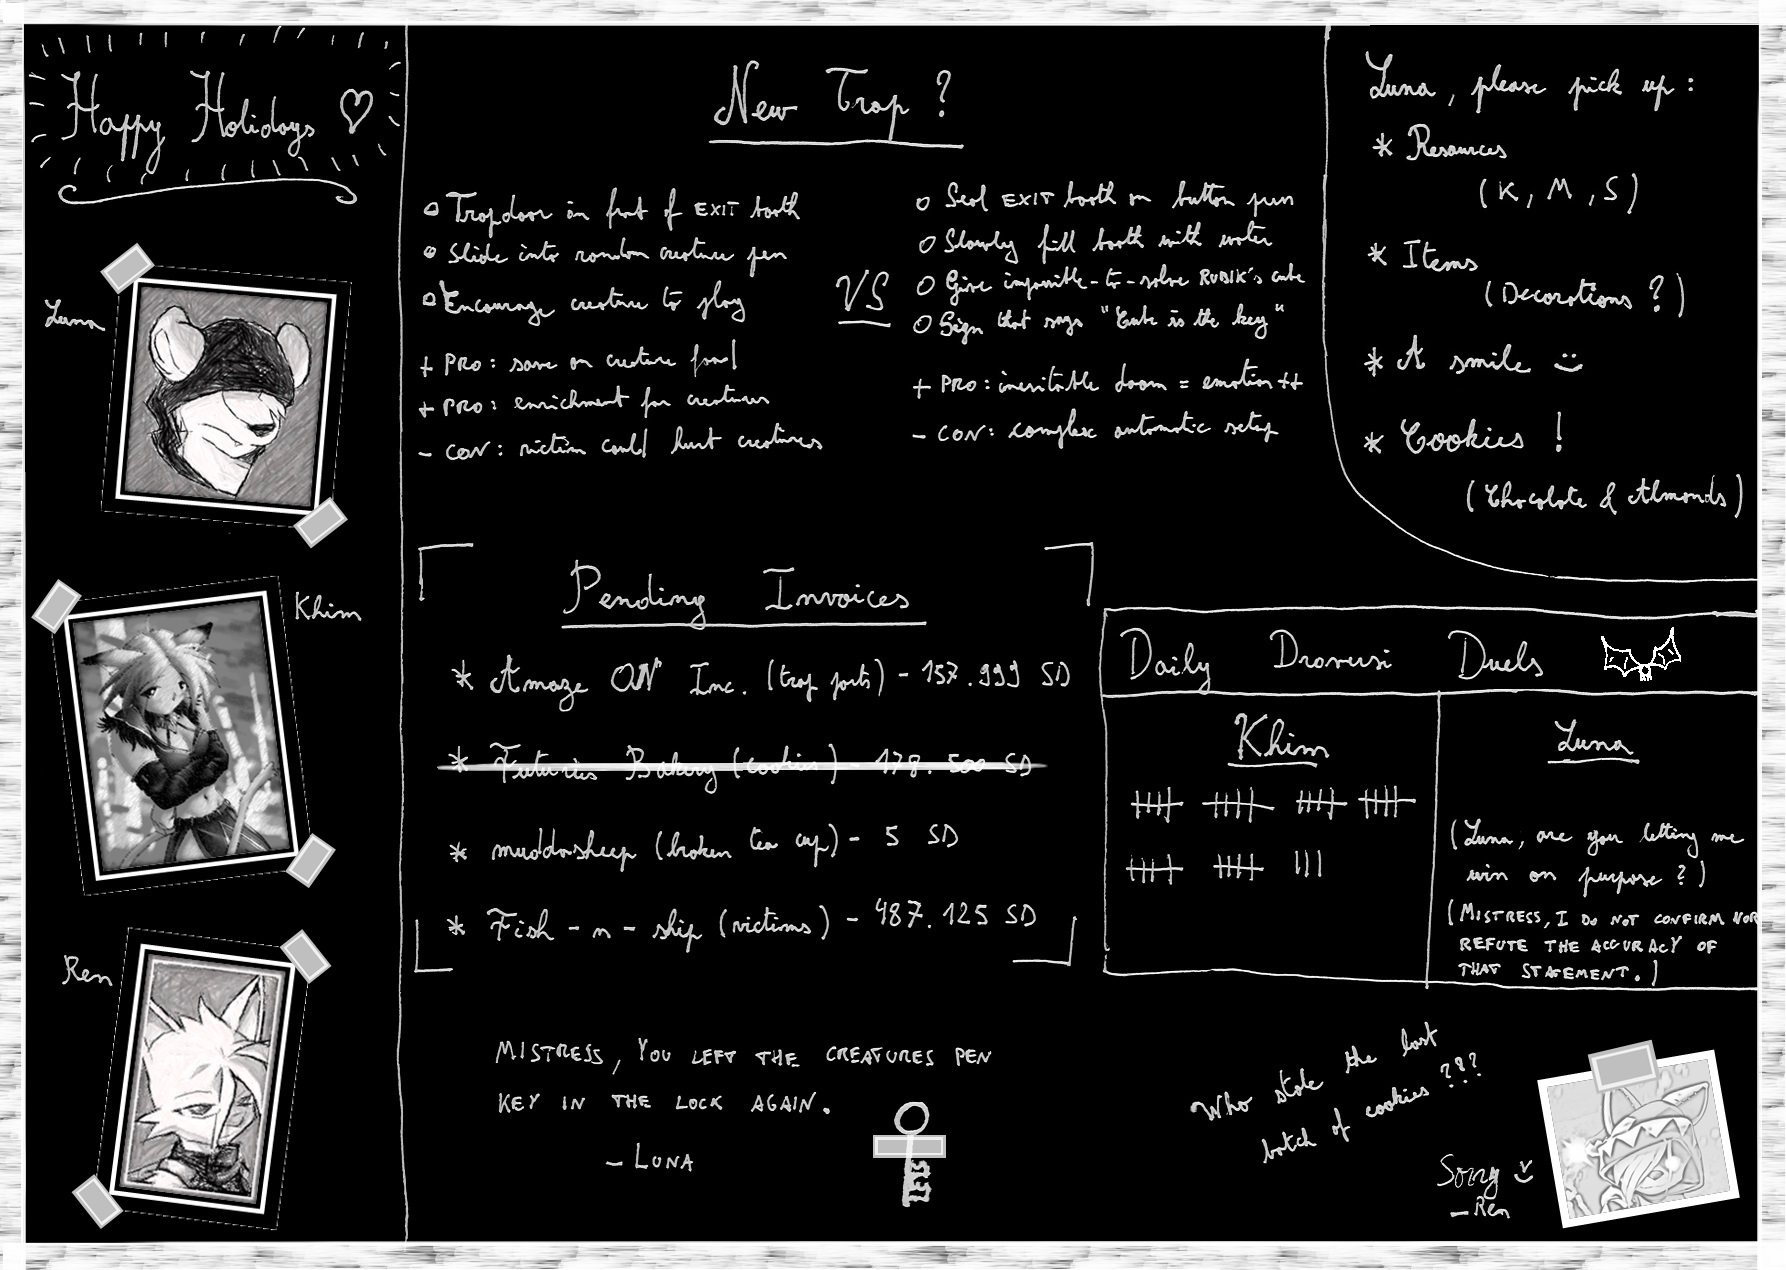 Happy Holidays
Luna
Khim
Ren
New Trap ?
o Trapdoor in front of EXIT booth
o Slide into random creature pen
o Encourage creature to play
+ PRO: save on creature food
+ PRO: enrichment for creatures
- CON: victim could hurt creatures
VS
o Seal EXIT booth on button press
o Slowly fill booth with water
o Give impossible-to-solve RUBIK's cube
o Sign that says "Cube is the key"
+ PRO: inevitable doom = emotion ++
- CON: complex automatic setup
Luna, please pick up :
* Resources
(K, M, S)
* Items
(Decorations ?)
* A smile :)
* Cookies !
(Chocolate & Almonds)
Pending Invoices
* Amaze ON Inc. (trap parts) - 157.999 SD
* Futuris Bakery (cookies) - 178.500 SD
* muddasheep (broken tea cup) - 5 SD
* Fish-n-ship (victims) - 487.125 SD
Daily Dronusi Duels
Khim
Luna
(Luna, are you letting me
win on purpose ?)
(MISTRESS, I DO NOT CONFIRM NOR
REFUTE THE ACCURACY OF
THAT STATEMENT.)
MISTRESS, YOU LEFT THE CREATURES PEN
KEY IN THE LOCK AGAIN.
- LUNA
Who stole the last
batch of cookies ???
Sorry
- Ren